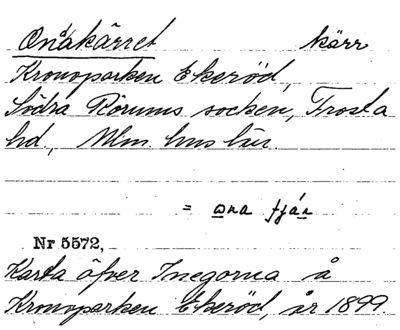 Ondakärret kärr
Kronoparken Ekeröd,
Södra Rörums socken, Frosta
hd., Mlm. hus län
= ɷna fjár
Nr 5572,
Karta öfver Inegorna å
Kronoparken Ekeröd, år 1899.